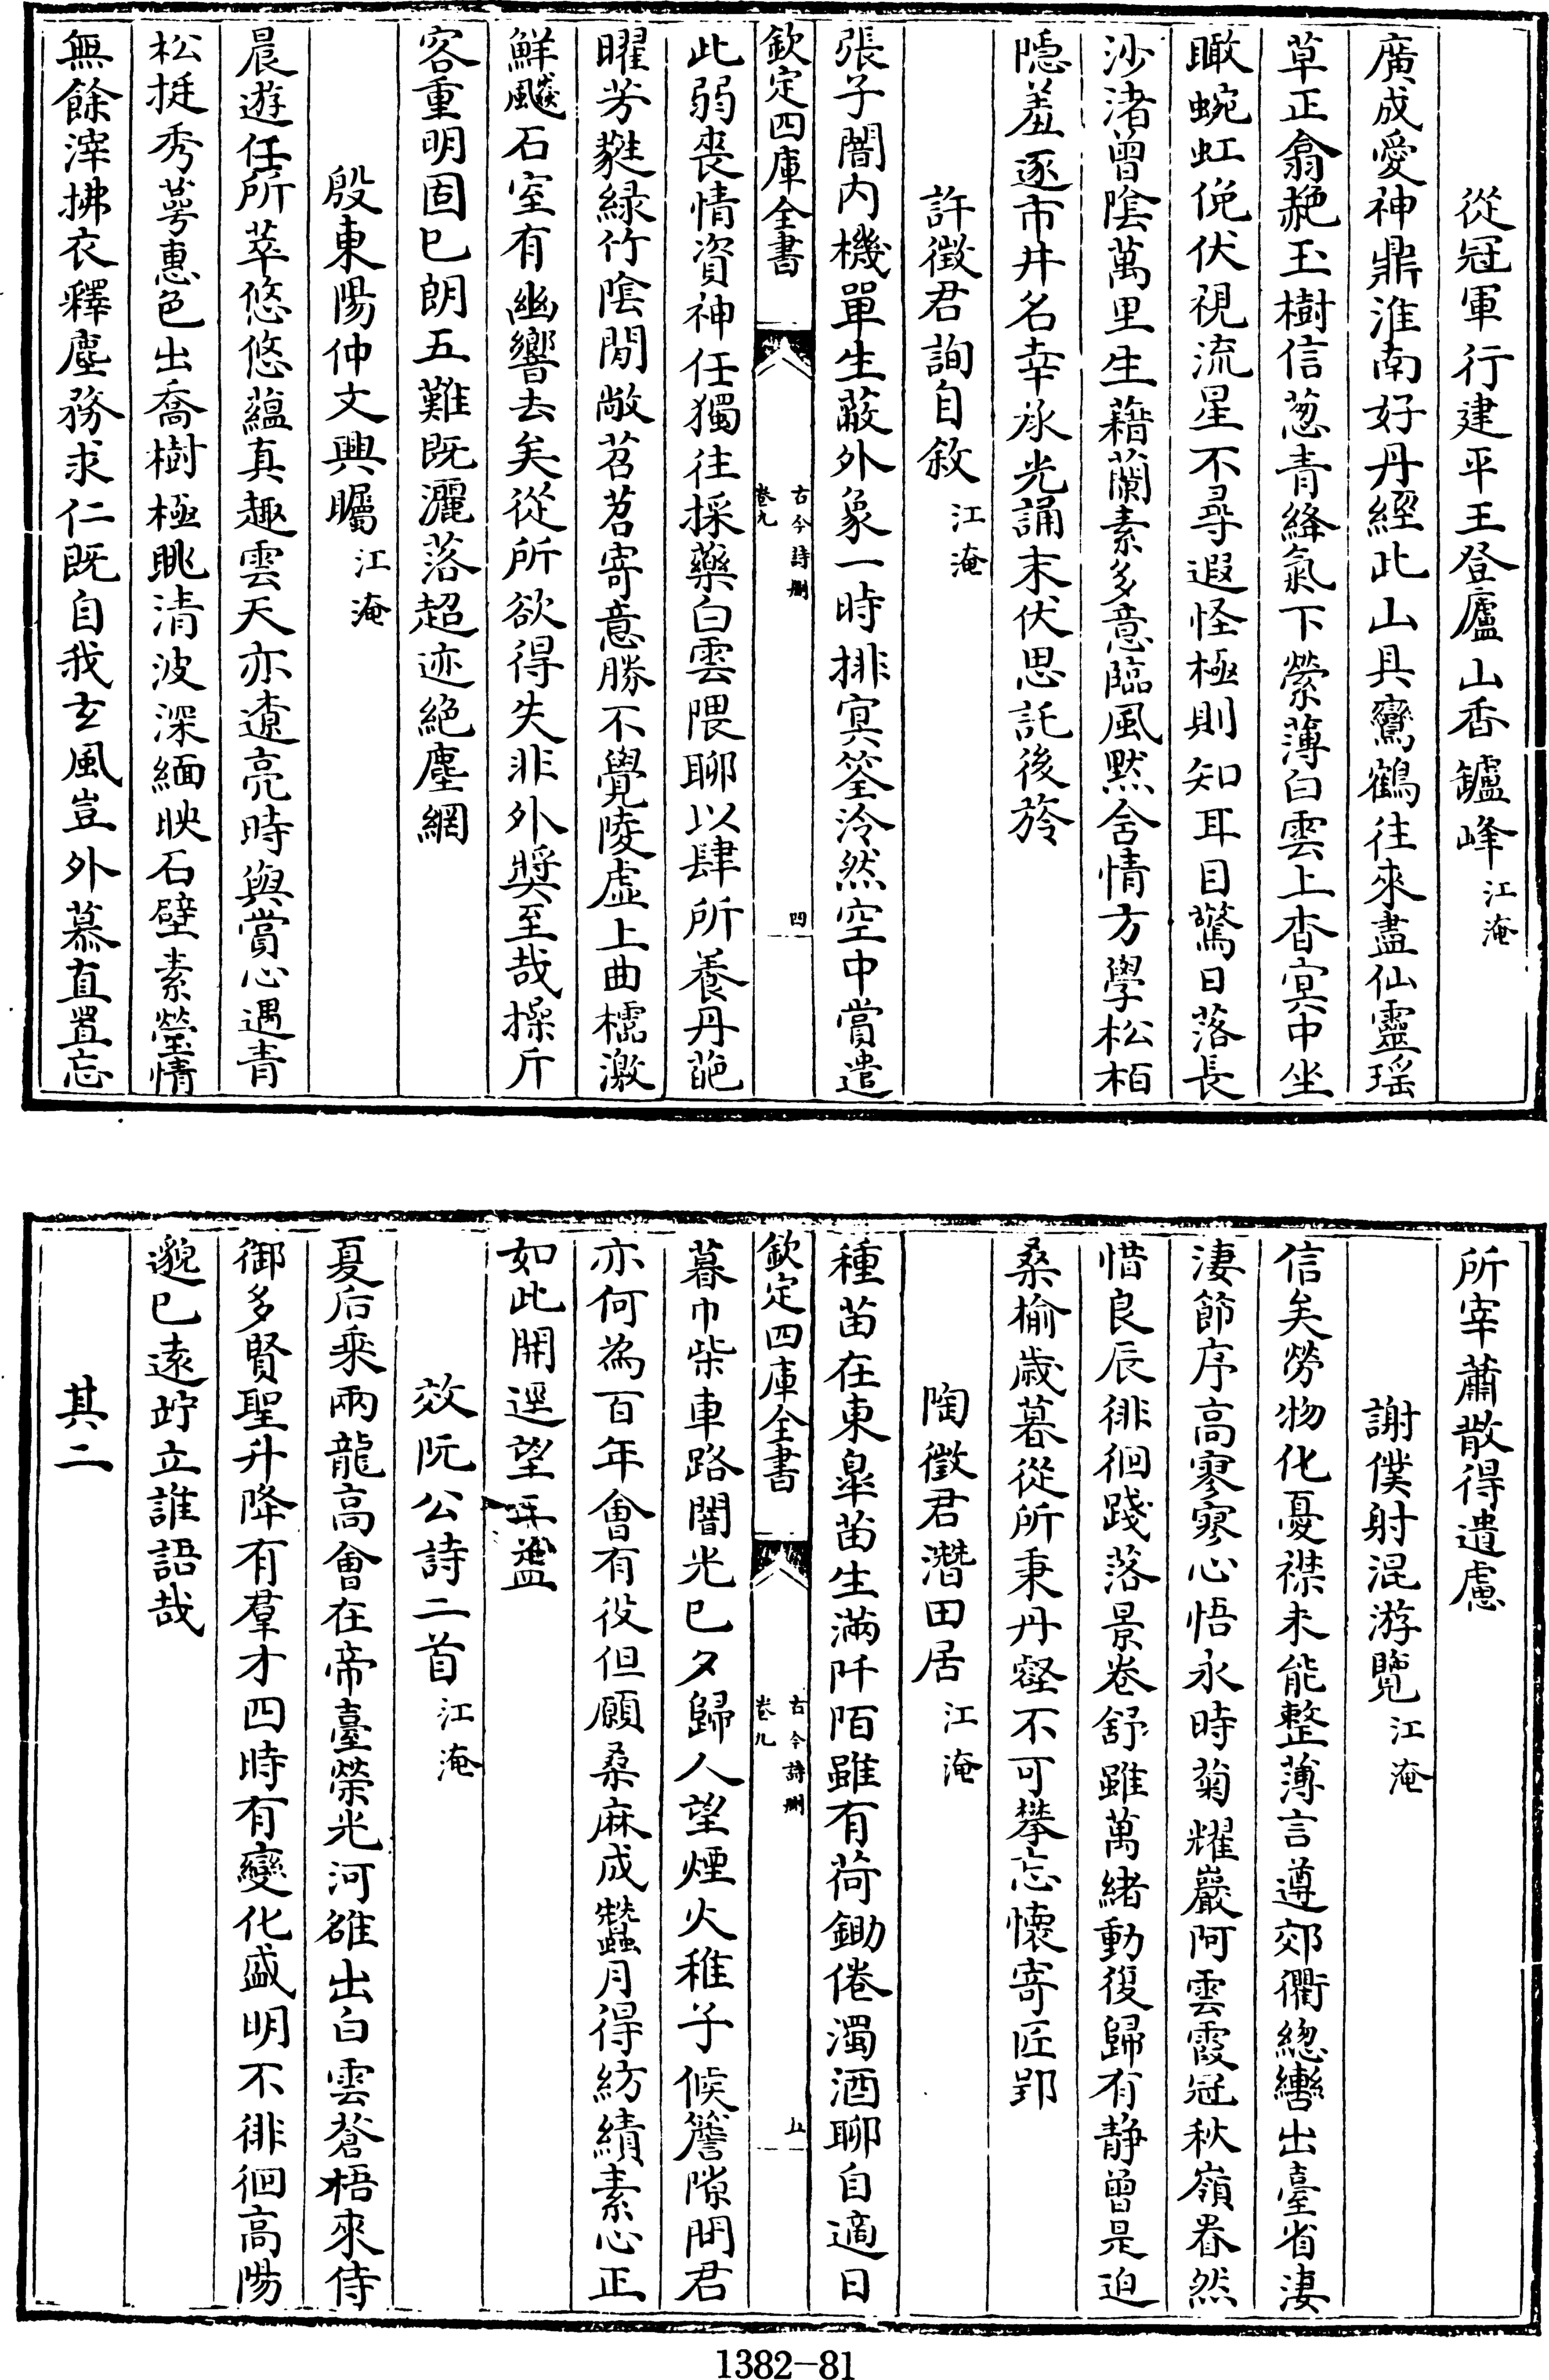 從冠軍行建平王登廬山香鑪峰江淹
廣成愛神鼎淮南好丹經此山具鸞鶴往來盡仙靈瑶
草正翕赩玉樹信葱青絳氣下縈薄白雲上杳㝠中坐
瞰蜿虹俛伏視流星不尋遐怪極則知耳目驚日落長
沙渚曾陰萬里生藉蘭素多意臨風黙含情方學松栢
隠羞逐市井名幸承光誦末伏思託後旍
許徵君詢自敘江淹
張子闇内機單生蔽外象一時排㝠筌泠然空中賞遣
欽定四庫全書
古今詩刪
卷九
四
此弱喪情資神任獨往採藥白雲隈聊以肆所養丹葩
曜芳蕤緑竹陰閒敞苕苕寄意勝不覺陵虚上曲櫺激
鮮飈石室有幽響去矣從所欲得失非外奬至哉操斤
客重明固已朗五難既灑落超迹絶塵網
殷東陽仲文興矚江淹
晨遊任所萃悠悠藴真趣雲天亦遼亮時與賞心遇青
松挺秀萼惠色出喬樹極眺清波深緬映石壁素瑩情
無餘滓拂衣釋塵務求仁既自我玄風豈外慕直置忘
所宰蕭散得遺慮
謝僕射混游覽江淹
信矣勞物化憂襟未能整薄言遵郊衢總轡出臺省淒
淒節序高寥寥心悟永時菊耀巖阿雲霞冠秋嶺眷然
惜良辰徘徊踐落景卷舒雖萬緒動復歸有静曾是迫
桑榆歳暮從所秉丹壑不可攀忘懷寄匠郢
陶徵君潛田居江淹
種苗在東臯苗生滿阡陌雖有荷鋤倦濁酒聊自適日
欽定四庫全書
古今詩刪
卷九
五
暮巾柴車路闇光已夕歸人望煙火稚子候簷隙問君
亦何為百年會有役但願桑麻成蠶月得紡績素心正
如此開逕望三益
效阮公詩二首江淹
夏后乘兩龍高會在帝臺榮光河雒出白雲蒼梧來侍
御多賢聖升降有羣才四時有變化盛明不徘徊高陽
邈已遠竚立誰語哉
其二
1382-81